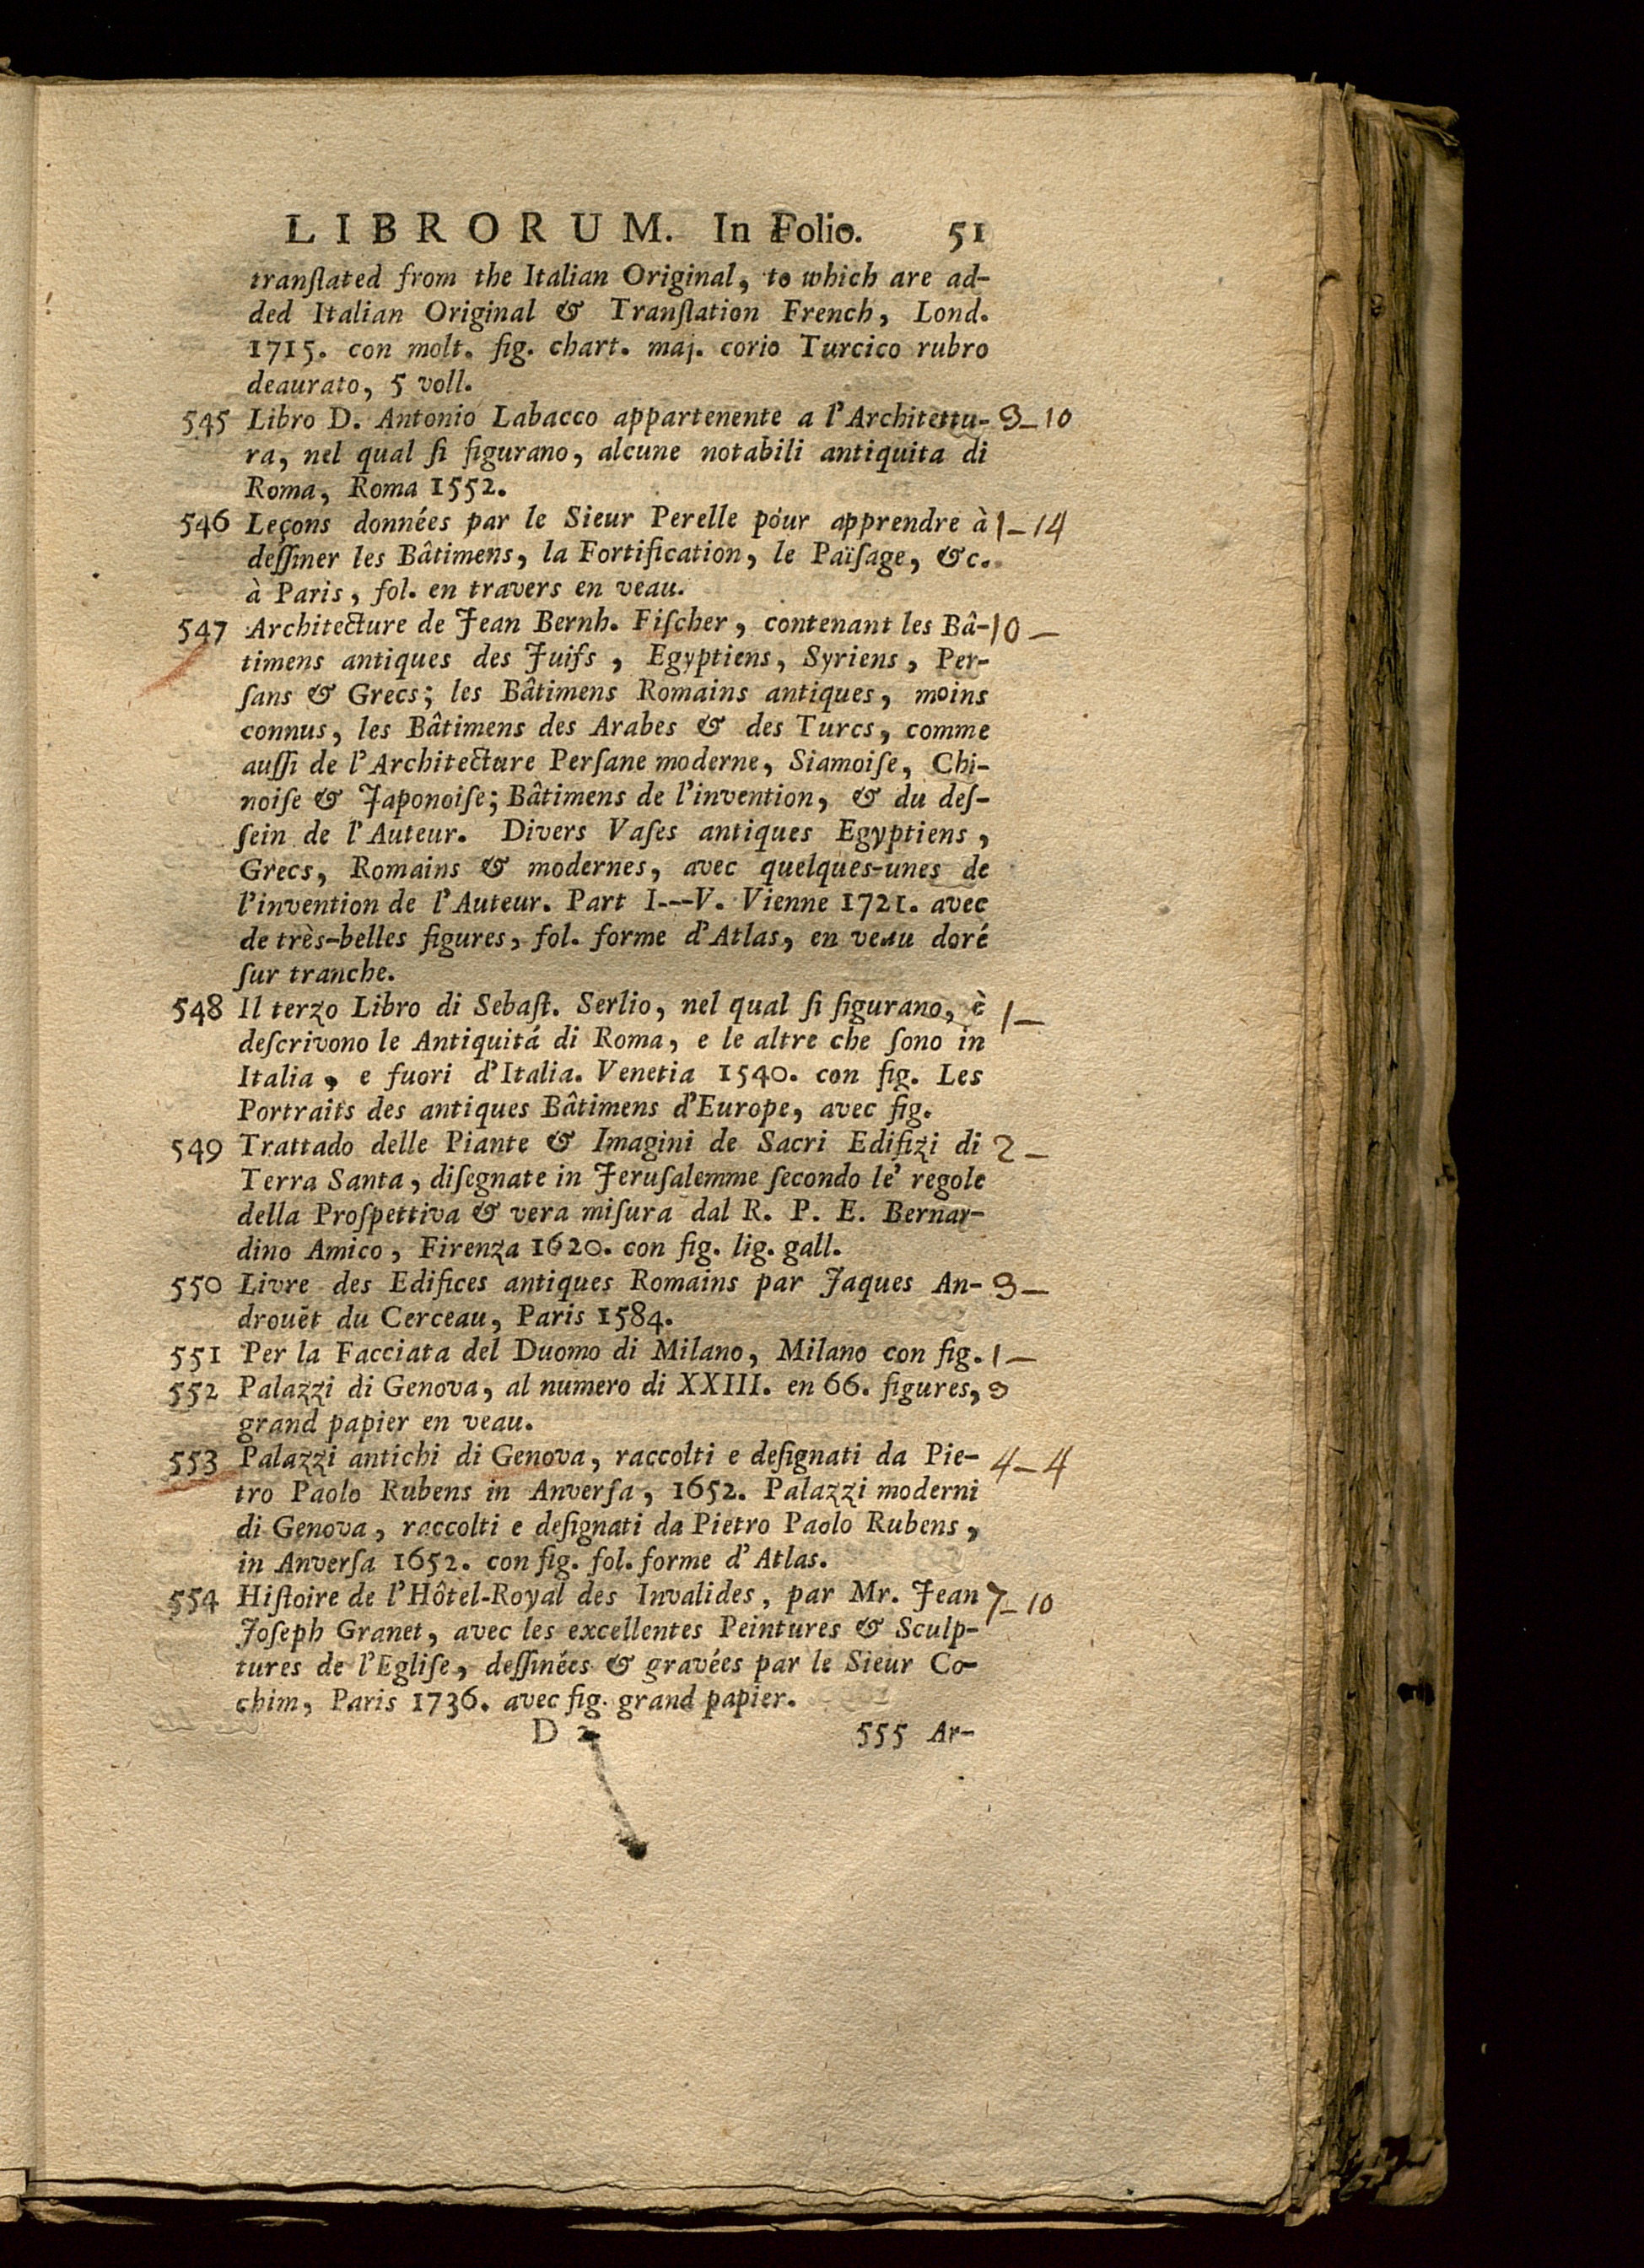 LIBRORUM. In Folio. 51
tranſlated from the Italian Original, to which are ad-
ded Italian Original & Tranſlation French, Lond.
1715. con molt. fig. chart. maj. corio Turcico rubro
deaurato, 5 voll.
545 Libro D. Antonio Labacco appartenente a l'Architettu- 3-10
ra, nel qual ſi figurano, alcune notabili antiquita di
Roma, Roma 1552.
546 Leçons données par le Sieur Perelle pour apprendre à 1-14
deſſiner les Bâtimens, la Fortification, le Païſage, &c.
à Paris, fol. en travers en veau.
547 Architecture de Jean Bernh. Fiſcher, contenant les Bâ- 10-
timens antiques des Juifs, Egyptiens, Syriens, Per-
ſans & Grecs; les Bâtimens Romains antiques, moins
connus, les Bâtimens des Arabes & des Turcs, comme
auſſi de l'Architecture Perſane moderne, Siamoiſe, Chi-
noiſe & Japonoiſe; Bâtimens de l'invention, & du deſ-
ſein de l'Auteur. Divers Vaſes antiques Egyptiens,
Grecs, Romains & modernes, avec quelques-unes de
l'invention de l'Auteur. Part I---V. Vienne 1721. avec
de très-belles figures, fol. forme d'Atlas, en veau doré
ſur tranche.
548 Il terzo Libro di Sebaſt. Serlio, nel qual ſi figurano, è 1-
deſcrivono le Antiquitá di Roma, e le altre che ſono in
Italia, e fuori d'Italia. Venetia 1540. con fig. Les
Portraits des antiques Bâtimens d'Europe, avec fig.
549 Trattado delle Piante & Imagini de Sacri Edifizi di 2-
Terra Santa, diſegnate in Jeruſalemme ſecondo le' regole
della Proſpettiva & vera miſura dal R. P. E. Bernar-
dino Amico, Firenza 1620. con fig. lig. gall.
550 Livre des Edifices antiques Romains par Jaques An- 3-
drouët du Cerceau, Paris 1584.
551 Per la Facciata del Duomo di Milano, Milano con fig. 1-
552 Palazzi di Genova, al numero di XXIII. en 66. figures, 3
grand papier en veau.
553 Palazzi antichi di Genova, raccolti e deſignati da Pie- 4-4
tro Paolo Rubens in Anverſa, 1652. Palazzi moderni
di Genova, raccolti e deſignati da Pietro Paolo Rubens,
in Anverſa 1652. con fig. fol. forme d'Atlas.
554 Hiſtoire de l'Hôtel-Royal des Invalides, par Mr. Jean 7-10
Joſeph Granet, avec les excellentes Peintures & Sculp-
tures de l'Egliſe, deſſinées & gravées par le Sieur Co-
chim, Paris 1736. avec fig. grand papier.
D 2 555 Ar-